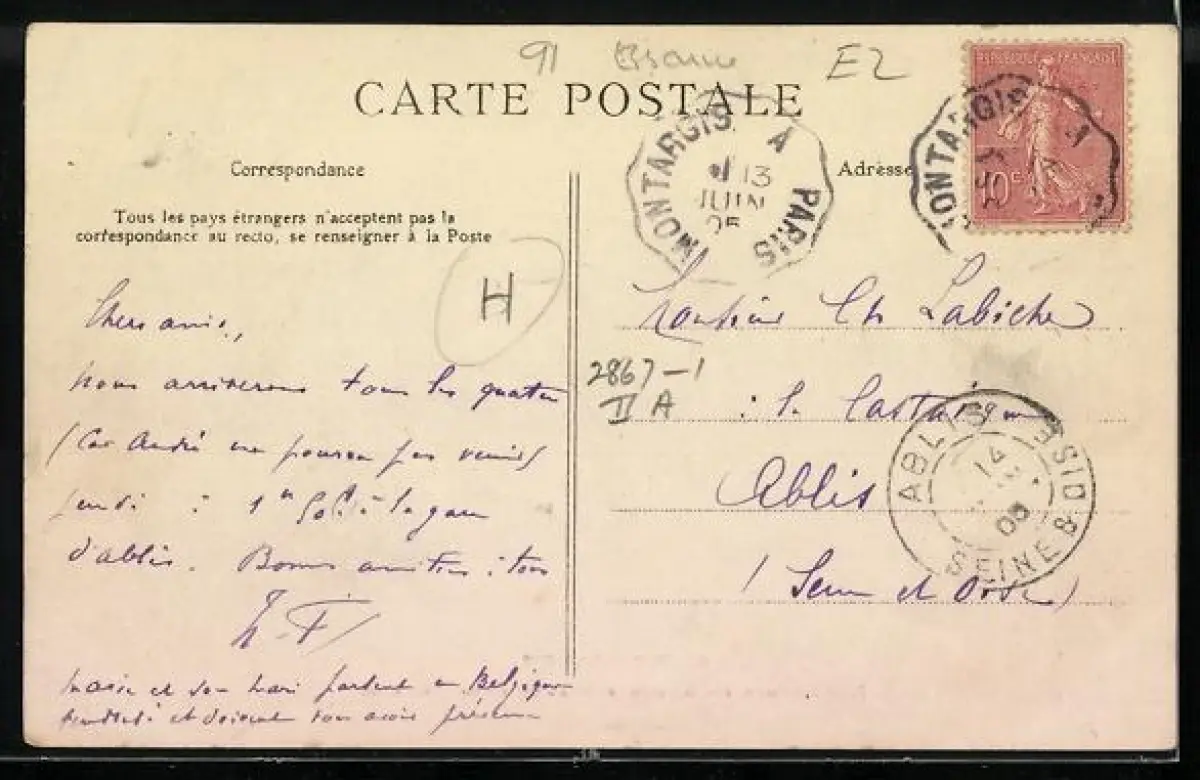 91 Essonne
E2
CARTE POSTALE
MONTARGIS A PARIS
13
JUIN
05
RÉPUBLIQUE FRANÇAISE
10c
MONTARGIS A
Correspondance
Adresse
Tous les pays étrangers n'acceptent pas la
correspondance au recto, se renseigner à la Poste
H
Chers amis,
Nous arriverons tous les quatre
(Car André ne pourra pas venir)
jeudi à 1h
à la gare
d'ablis. Bonnes amitiés à tous
Monsieur Ch Labiche
2867-1
II A
Ablis
(Seine et Oise)
ABLIS SEINE & OISE
14
05
Marie et son mari partent en Belgique
et doivent